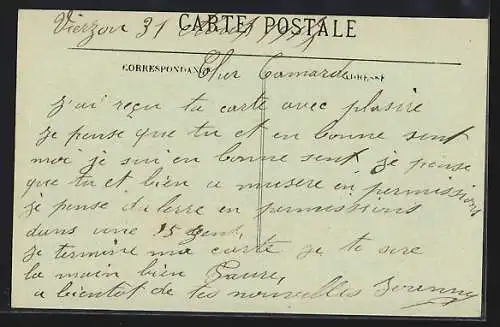 CARTE POSTALE
Vierzon 31
CORRESPONDANCE
Cher Camarde
J'ai reçu ta carte avec plasire
Je pense que tu et en bonne sent
moi je sui en bonne sent, je pense
que tu et bien a musere en permission
je pense
en permissions
dans une 15
Je termine ma carte je te sere
la main bien
a bientot de tes nouvelles